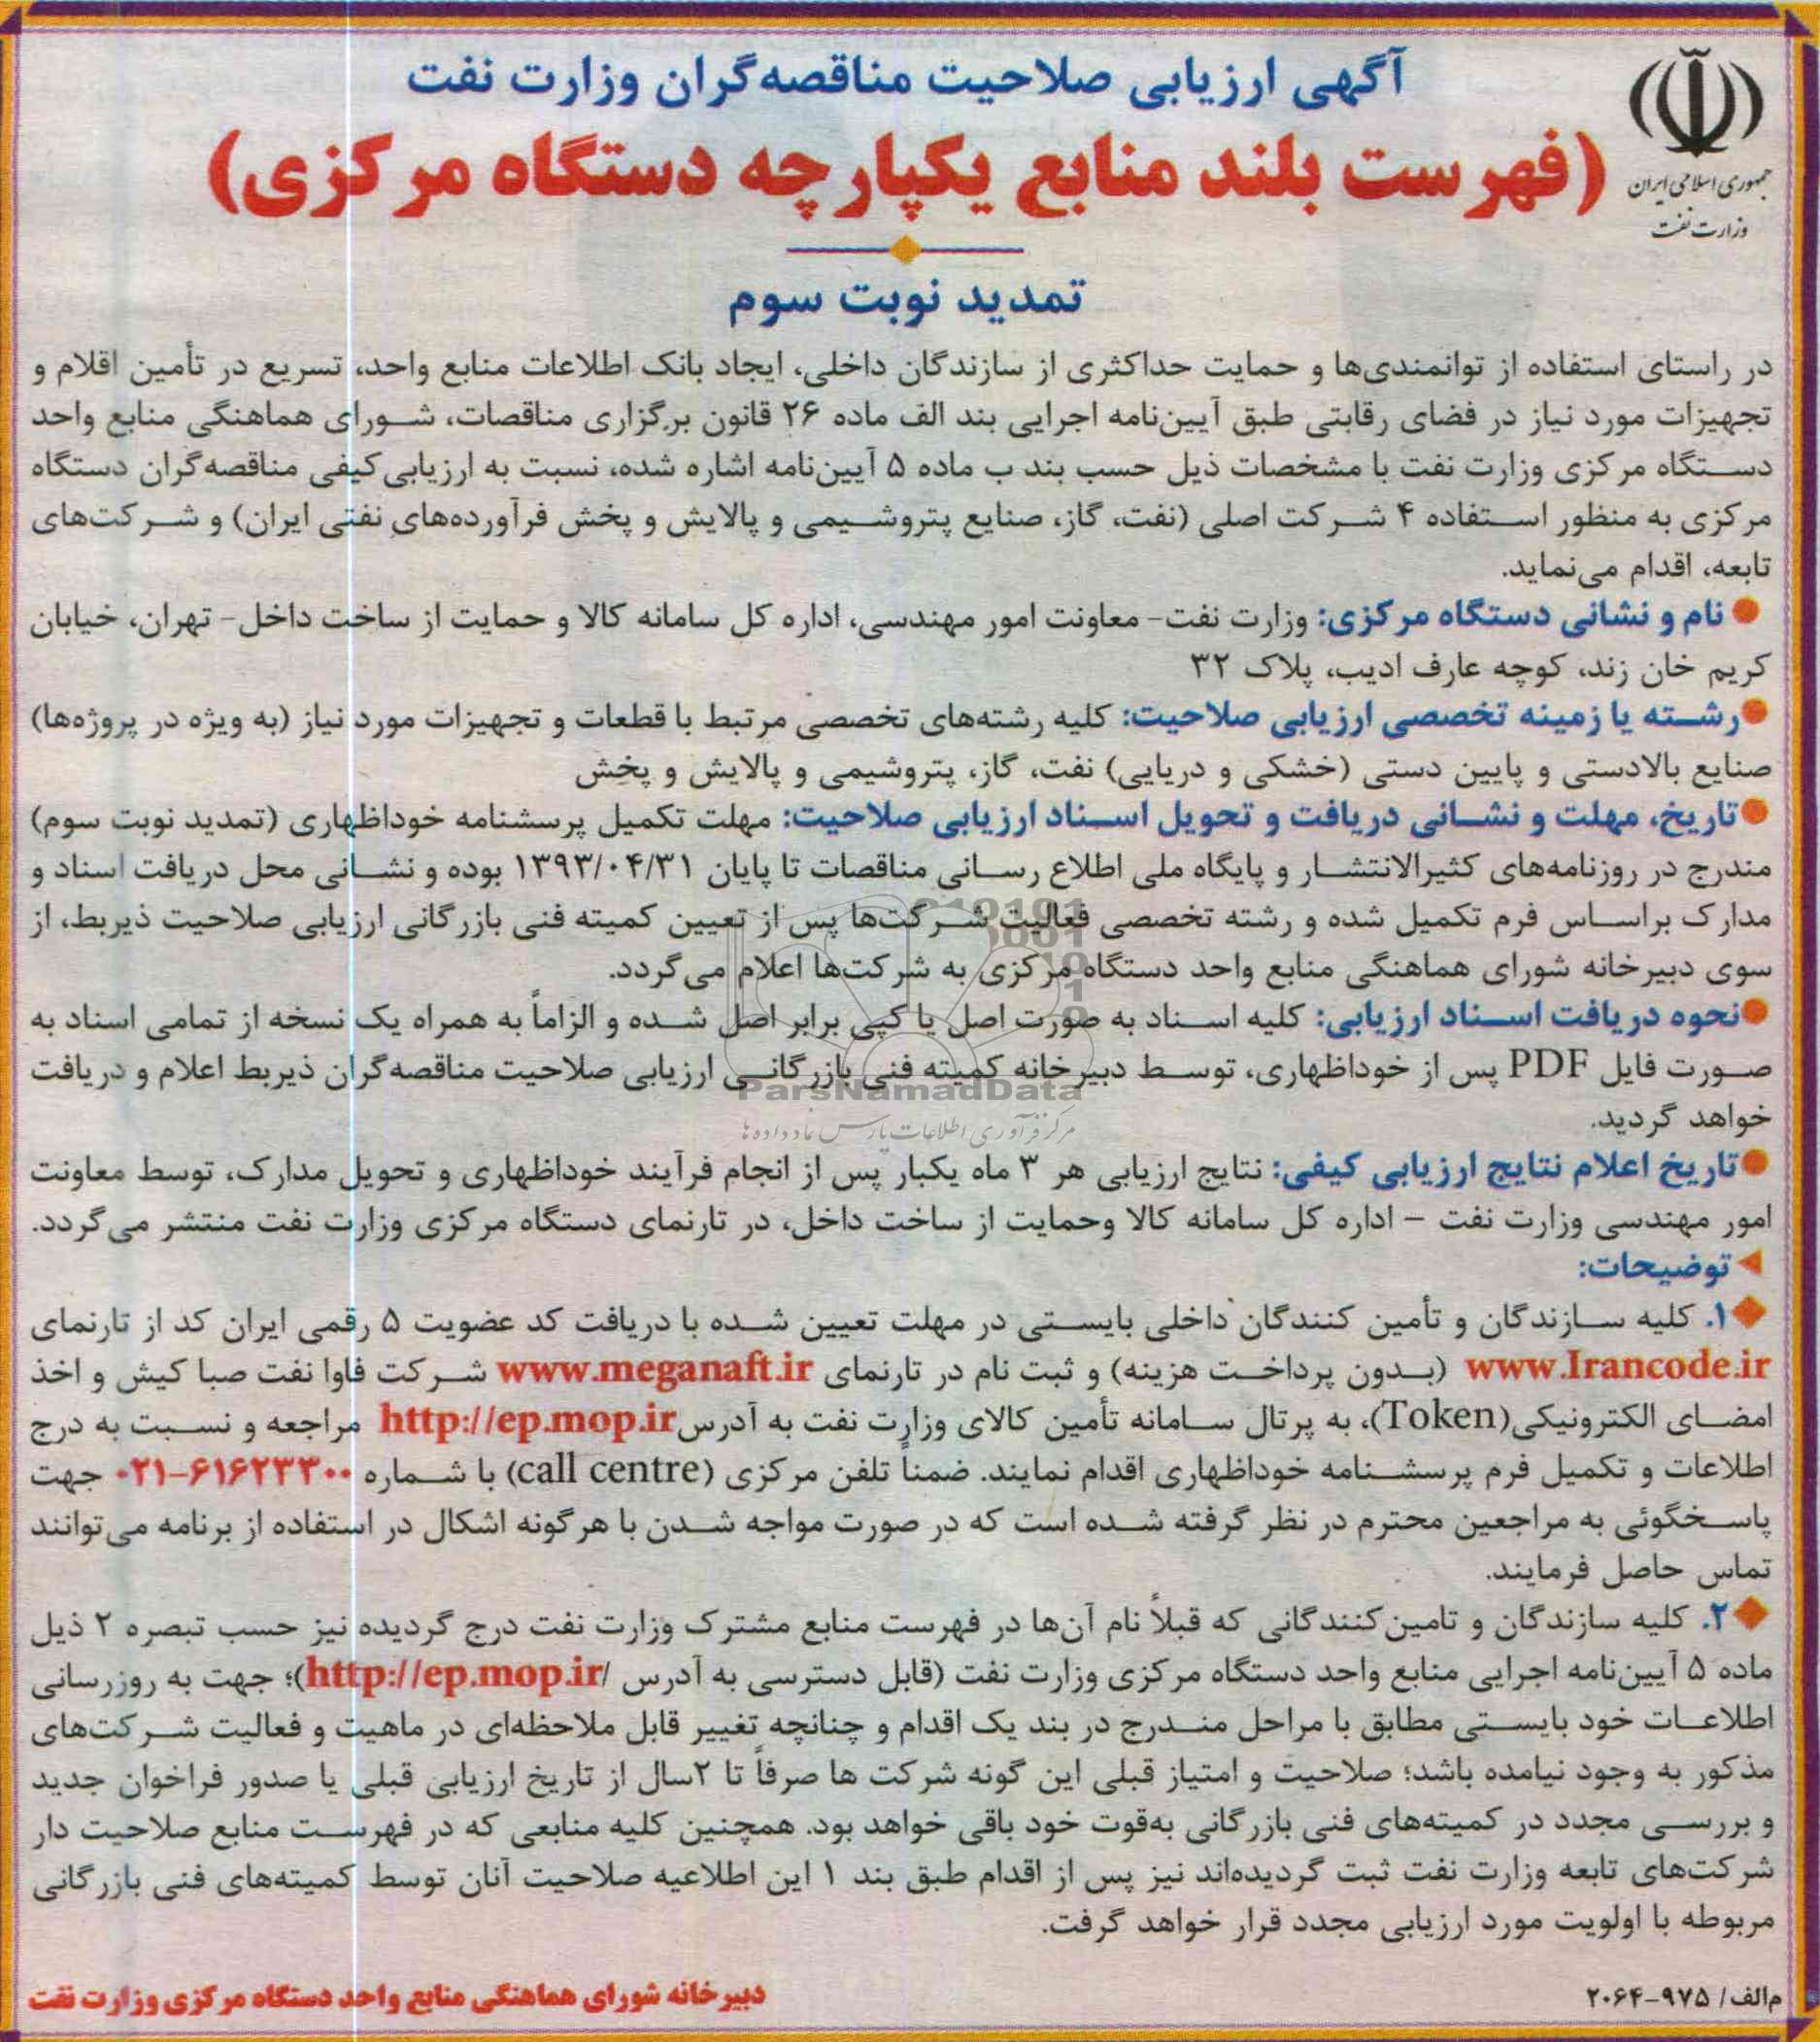 آگهی ارزیابی صلاحیت مناقصه‌گران وزارت نفت
(فهرست بلند منابع یکپارچه دستگاه مرکزی)
جمهوری اسلامی ایران
وزارت نفت
تمدید نوبت سوم
در راستای استفاده از توانمندی‌ها و حمایت حداکثری از سازندگان داخلی، ایجاد بانک اطلاعات منابع واحد، تسریع در تأمین اقلام و
تجهیزات مورد نیاز در فضای رقابتی طبق آیین‌نامه اجرایی بند الف ماده ۲۶ قانون برگزاری مناقصات، شورای هماهنگی منابع واحد
دستگاه مرکزی وزارت نفت با مشخصات ذیل حسب بند ب ماده ۵ آیین‌نامه اشاره شده، نسبت به ارزیابی کیفی مناقصه‌گران دستگاه
مرکزی به منظور استفاده ۴ شرکت اصلی (نفت، گاز، صنایع پتروشیمی و پالایش و پخش فرآورده‌های نفتی ایران) و شرکت‌های
تابعه، اقدام می‌نماید.
● نام و نشانی دستگاه مرکزی: وزارت نفت- معاونت امور مهندسی، اداره کل سامانه کالا و حمایت از ساخت داخل- تهران، خیابان
کریم خان زند، کوچه عارف ادیب، پلاک ۳۲
●رشته یا زمینه تخصصی ارزیابی صلاحیت: کلیه رشته‌های تخصصی مرتبط با قطعات و تجهیزات مورد نیاز (به ویژه در پروژه‌ها)
صنایع بالادستی و پایین دستی (خشکی و دریایی) نفت، گاز، پتروشیمی و پالایش و پخش
●تاریخ، مهلت و نشانی دریافت و تحویل اسناد ارزیابی صلاحیت: مهلت تکمیل پرسشنامه خوداظهاری (تمدید نوبت سوم)
مندرج در روزنامه‌های کثیرالانتشار و پایگاه ملی اطلاع رسانی مناقصات تا پایان ۱۳۹۳/۰۴/۳۱ بوده و نشانی محل دریافت اسناد و
مدارک براساس فرم تکمیل شده و رشته تخصصی فعالیت شرکت‌ها پس از تعیین کمیته فنی بازرگانی ارزیابی صلاحیت ذیربط، از
سوی دبیرخانه شورای هماهنگی منابع واحد دستگاه مرکزی به شرکت‌ها اعلام می‌گردد.
●نحوه دریافت اسناد ارزیابی: کلیه اسناد به صورت اصل یا کپی برابر اصل شده و الزاماً به همراه یک نسخه از تمامی اسناد به
صورت فایل PDF پس از خوداظهاری، توسط دبیرخانه کمیته فنی بازرگانی ارزیابی صلاحیت مناقصه‌گران ذیربط اعلام و دریافت
ParsNamadData
خواهد گردید.
مرکز فرآوری اطلاعات پارس نماد داده ها
●تاریخ اعلام نتایج ارزیابی کیفی: نتایج ارزیابی هر ۳ ماه یکبار پس از انجام فرآیند خوداظهاری و تحویل مدارک، توسط معاونت
امور مهندسی وزارت نفت – اداره کل سامانه کالا وحمایت از ساخت داخل، در تارنمای دستگاه مرکزی وزارت نفت منتشر می‌گردد.
◄توضیحات:
◆۱. کلیه سازندگان و تأمین کنندگان داخلی بایستی در مهلت تعیین شده با دریافت کد عضویت ۵ رقمی ایران کد از تارنمای
www.Irancode.ir (بدون پرداخت هزینه) و ثبت نام در تارنمای www.meganaft.ir شرکت فاوا نفت صبا کیش و اخذ
امضای الکترونیکی(Token)، به پرتال سامانه تأمین کالای وزارت نفت به آدرس http://ep.mop.ir مراجعه و نسبت به درج
اطلاعات و تکمیل فرم پرسشنامه خوداظهاری اقدام نمایند. ضمناً تلفن مرکزی (call centre) با شماره ۰۲۱-۶۱۶۲۳۳۰۰ جهت
پاسخگوئی به مراجعین محترم در نظر گرفته شده است که در صورت مواجه شدن با هرگونه اشکال در استفاده از برنامه می‌توانند
تماس حاصل فرمایند.
◆۲. کلیه سازندگان و تامین‌کنندگانی که قبلاً نام آن‌ها در فهرست منابع مشترک وزارت نفت درج گردیده نیز حسب تبصره ۲ ذیل
ماده ۵ آیین‌نامه اجرایی منابع واحد دستگاه مرکزی وزارت نفت (قابل دسترسی به آدرس http://ep.mop.ir/)؛ جهت به روزرسانی
اطلاعات خود بایستی مطابق با مراحل مندرج در بند یک اقدام و چنانچه تغییر قابل ملاحظه‌ای در ماهیت و فعالیت شرکت‌های
مذکور به وجود نیامده باشد؛ صلاحیت و امتیاز قبلی این گونه شرکت ها صرفاً تا ۲سال از تاریخ ارزیابی قبلی یا صدور فراخوان جدید
و بررسی مجدد در کمیته‌های فنی بازرگانی به‌قوت خود باقی خواهد بود. همچنین کلیه منابعی که در فهرست منابع صلاحیت دار
شرکت‌های تابعه وزارت نفت ثبت گردیده‌اند نیز پس از اقدام طبق بند ۱ این اطلاعیه صلاحیت آنان توسط کمیته‌های فنی بازرگانی
مربوطه با اولویت مورد ارزیابی مجدد قرار خواهد گرفت.
م‌الف/ ۹۷۵-۲۰۶۴
دبیرخانه شورای هماهنگی منابع واحد دستگاه مرکزی وزارت نفت